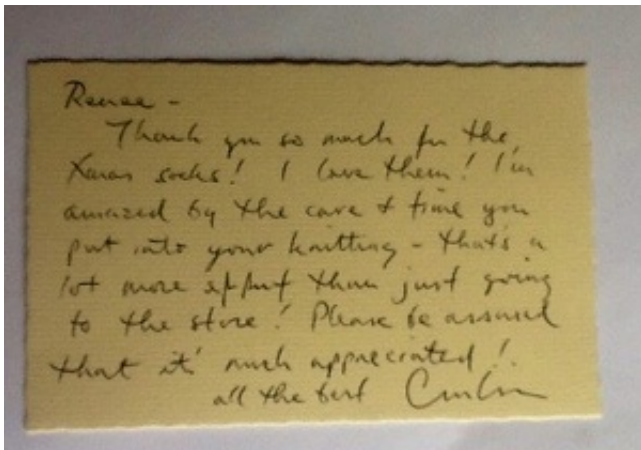 Renee -
Thank you so much for the
Xmas socks! I love them! I'm
amazed by the care + time you
put into your knitting - that's a
lot more effort than just going
to the store! Please be assured
that it's much appreciated!
all the best